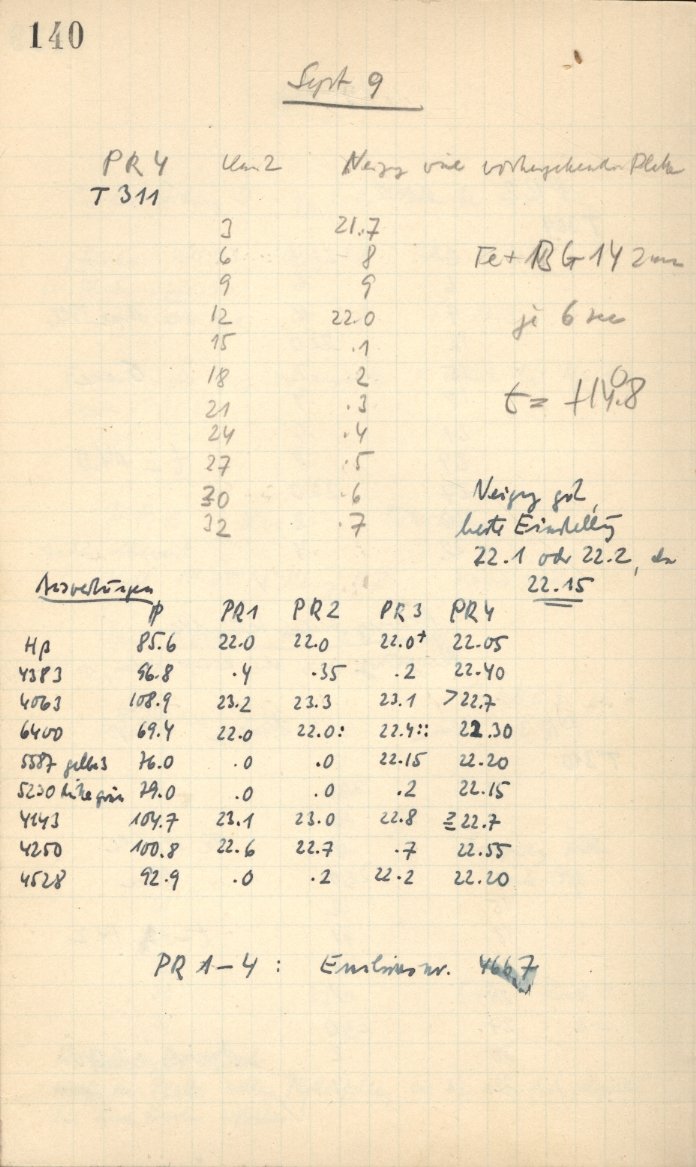 140
Sept 9
PR4 Kam 2 Neigg wie vorhergehende Platte
T 311
3 21.7
6 8
9 9
12 22.0
15 .1
18 2
21 .3
24 .4
27 .5
30 .6
32 .7
Fe + BG 14 2mm
je 6 sec
t = +14°.8
Neigg gut,
beste Einstellg
22.1 oder 22.2, also
22.15
Auswertungen
P PR1 PR2 PR3 PR4
Hβ 85.6 22.0 22.0 22.0+ 22.05
4383 96.8 .4 .35 .2 22.40
4063 108.9 23.2 23.3 23.1 >22.7
6400 69.4 22.0 22.0: 22.4:: 22.30
5587 gelb 3 76.0 .0 .0 22.15 22.20
5230 79.0 .0 .0 .2 22.15
4143 104.7 23.1 23.0 22.8 ≥22.7
4250 100.8 22.6 22.7 .7 22.55
4528 92.9 .0 .2 22.2 22.20
PR 1–4 : Emulsionsnr. 4667